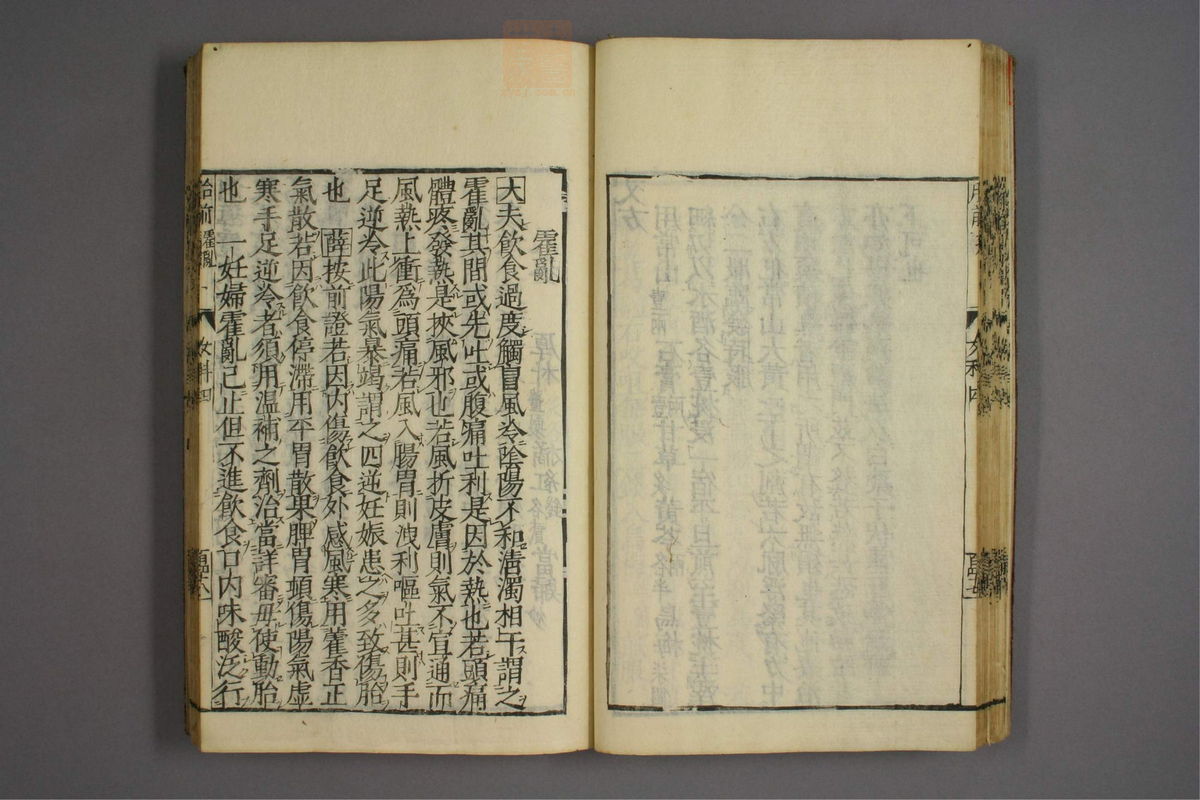 霍亂
大夫飲食過度觸冒風冷陰陽不和清濁相干謂之
霍亂其間或先吐或腹痛吐利是因於熱也若頭痛
體疼發熱是挾風邪也若風折皮膚則氣不宣通而
風熱上衝爲頭痛若風入腸胃則洩利嘔吐甚則手
足逆冷此陽氣暴竭謂之四逆妊娠患之多致傷胎
也 薛按前證若因内傷飲食外感風寒用藿香正
氣散若因飲食停滯用平胃散果脾胃頓傷陽氣虛
寒手足逆冷者須用溫補之劑治當詳審毋使動胎
也 一妊婦霍亂已止但不進飲食口内味酸泛行
胎前 霍亂
女科四